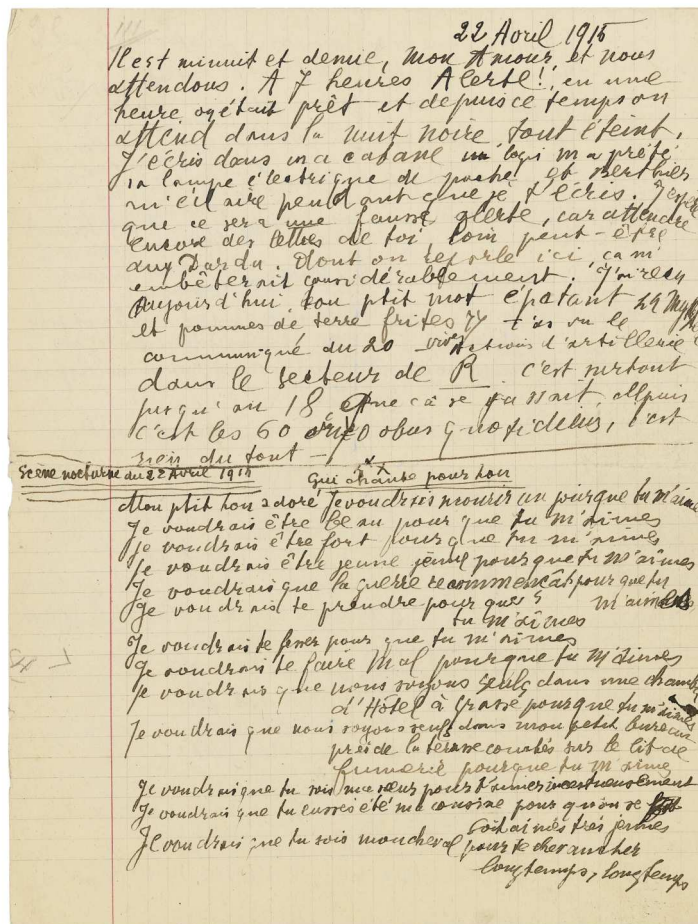 22 Avril 1915
Il est minuit et demie, mon Amour, et nous
attendons. A 7 heures Alerte!, en une
heure on était prêt et depuis ce temps on
attend dans la nuit noire, tout éteint.
J'écris dans ma cabane un logis m'a prêté
sa lampe électrique de poche et Berthier
m'éclaire pendant que je t'écris. J'espère
que ce sera une fausse alerte, car attendre
encore des lettres de toi, loin peut-être
aux Dardan. dont on reparle ici, ça m'
embêterait considérablement. J'ai reçu
Aujourd'hui ton ptit mot épatant
et pommes de terre frites t'as vu le
communiqué du 20 vives Actions d'artillerie
dans le secteur de R c'est surtout
jusqu'au 18 que ça se passait, depuis
c'est les 60 obus quotidiens, c'est
rien du tout —
Scène nocturne du 22 Avril 1915
Qui chante pour Lou
Mon ptit Lou adoré Je voudrais mourir un jour que tu m'aimes
Je voudrais être beau pour que tu m'aimes
Je voudrais être fort pour que tu m'aimes
Je voudrais être jeune jeune pour que tu m'aimes
Je voudrais que la guerre recommençât pour que tu
m'aimes
Je voudrais te prendre pour que
tu m'aimes
Je voudrais te fesser pour que tu m'aimes
Je voudrais te faire mal pour que tu m'aimes
Je voudrais que nous soyons seuls dans une chambre
d'Hôtel à Grasse pour que tu m'aimes
Je voudrais que nous soyons seuls dans mon petit bureau
près de la terrasse couchés sur le lit de
fumerie pour que tu m'aimes
Je voudrais que tu sois ma sœur pour t'aimer incestueusement
Je voudrais que tu eusses été ma cousine pour qu'on se
soit aimés très jeunes
Je voudrais que tu sois mon cheval pour te chevaucher
longtemps, longtemps